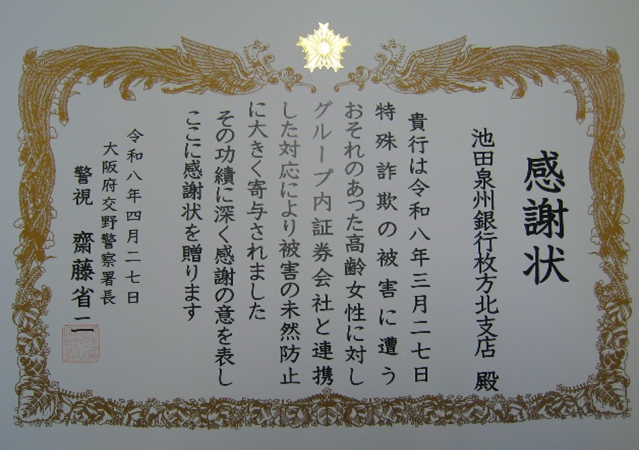 感謝状
池田泉州銀行枚方北支店 殿
貴行は令和八年三月二七日
特殊詐欺の被害に遭う
おそれのあった高齢女性に対し
グループ内証券会社と連携
した対応により被害の未然防止
に大きく寄与されました
その功績に深く感謝の意を表し
ここに感謝状を贈ります
令和八年四月二七日
大阪府交野警察署長
警視 齋藤省二